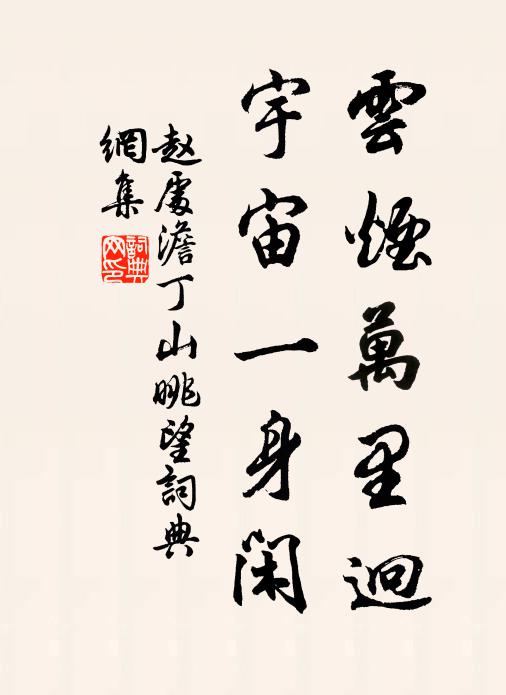 雲煙萬里迥
宇宙一身閑
赵處澹丁山眺望詞典
網集
詞典
网印